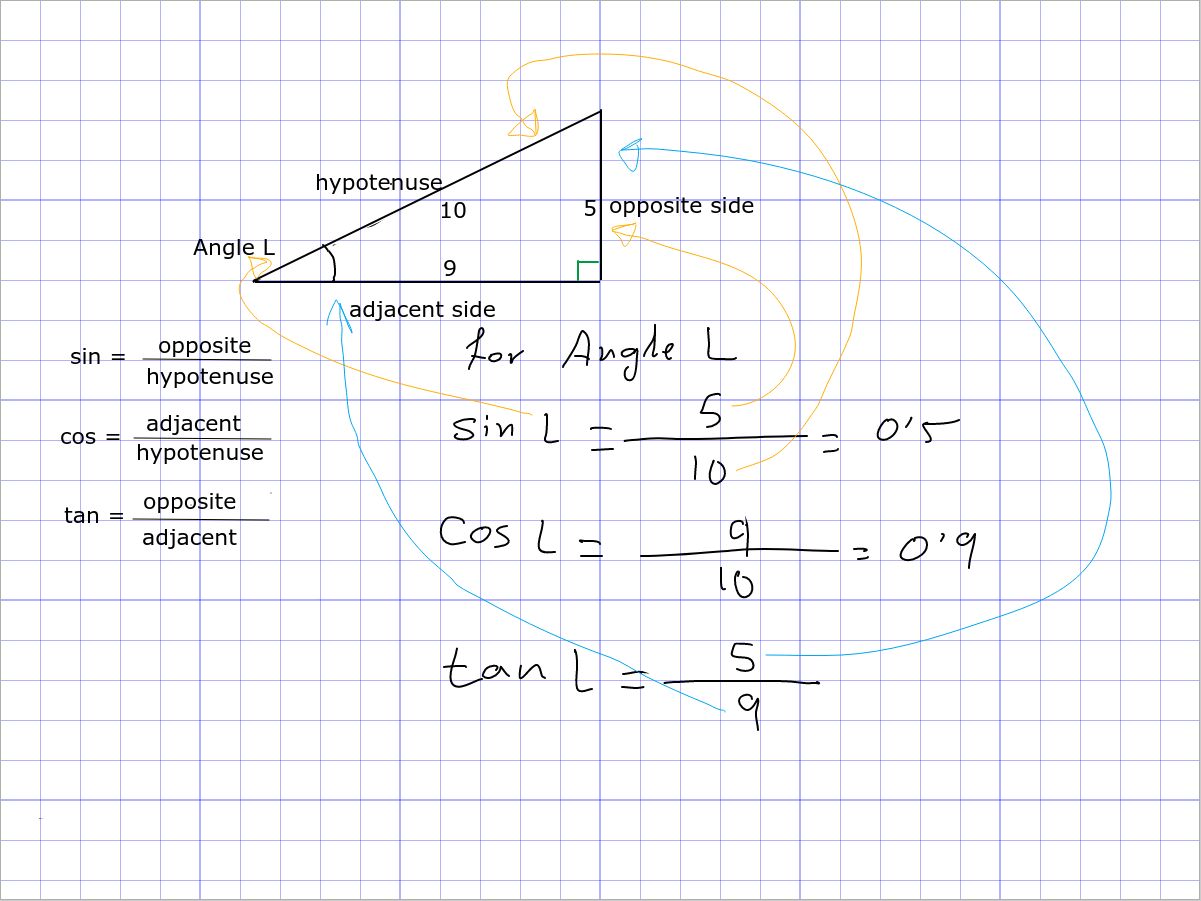 hypotenuse
10
5 opposite side
Angle L
9
adjacent side
sin = opposite / hypotenuse
cos = adjacent / hypotenuse
tan = opposite / adjacent
for Angle L
sin L = 5 / 10 = 0'5
Cos L = 9 / 10 = 0'9
tan L = 5 / 9